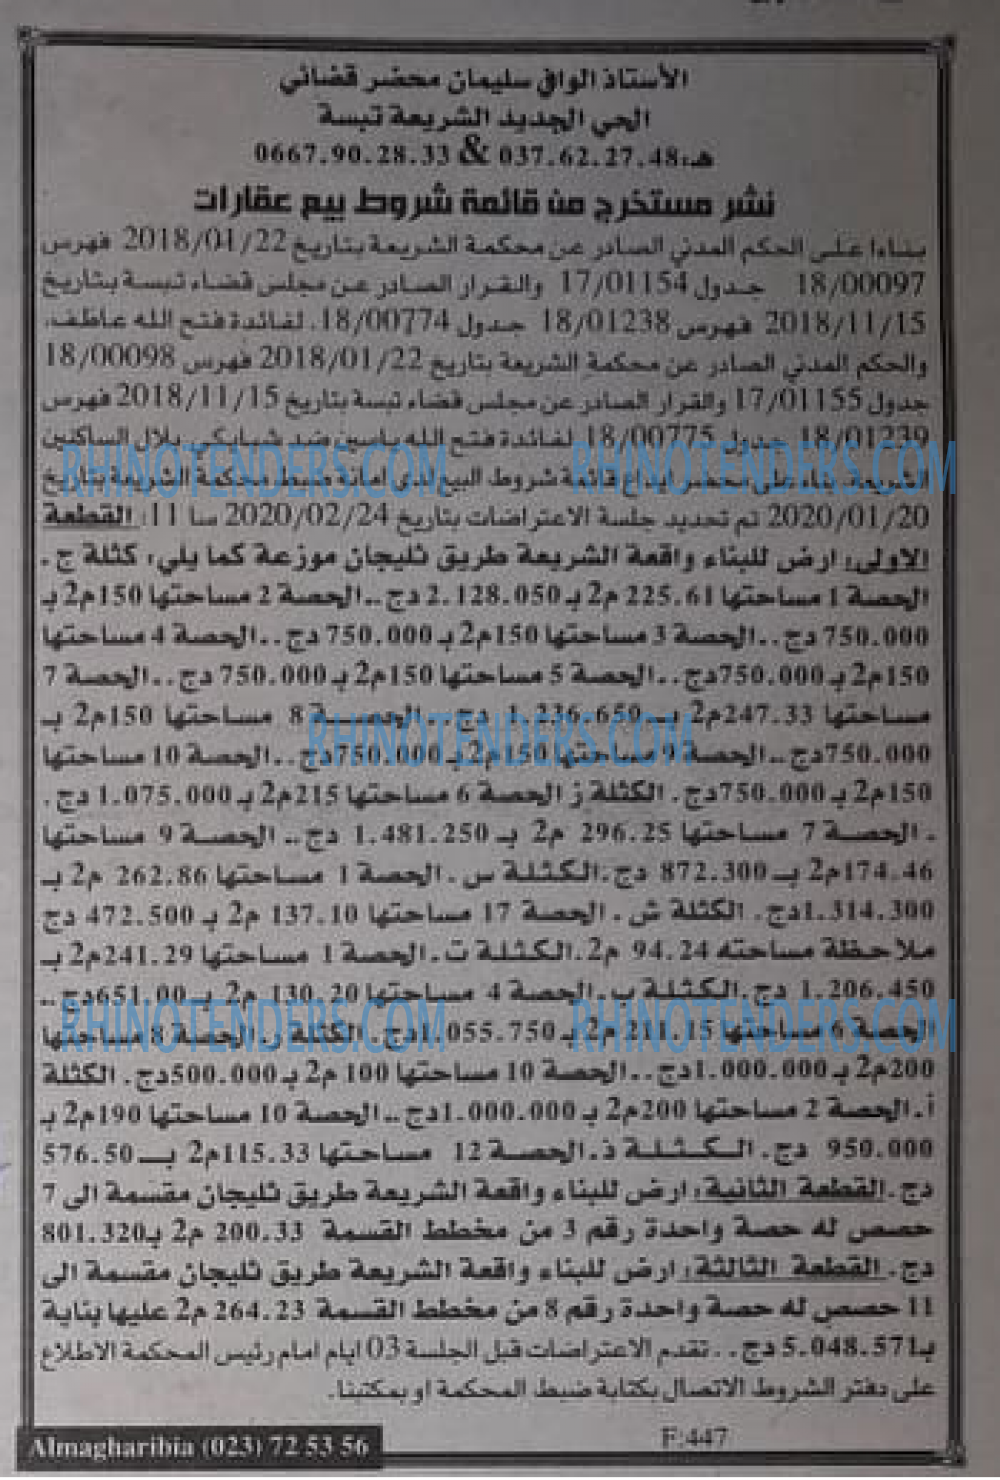 الأستاذ الوافي سليمان محضر قضائي
الحي الجديد الشريعة تبسة
هـ:037.62.27.48 & 0667.90.28.33
نشر مستخرج من قائمة شروط بيع عقارات
بناءا على الحكم المدني الصادر عن محكمة الشريعة بتاريخ 2018/01/22 فهرس
18/00097 جدول 17/01154 والقرار الصادر عن مجلس قضاء تبسة بتاريخ
2018/11/15 فهرس 18/01238 جدول 18/00774، لفائدة فتح الله عاطف،
والحكم المدني الصادر عن محكمة الشريعة بتاريخ 2018/01/22 فهرس 18/00098
جدول 17/01155 والقرار الصادر عن مجلس قضاء تبسة بتاريخ 2018/11/15 فهرس
18/01239 جدول 18/00775 لفائدة فتح الله ياسين ضد شبايكي بلال الساكنين
الشريعة. بناء على محضر ايداع قائمة شروط البيع لدى امانة ضبط محكمة الشريعة بتاريخ
2020/01/20 تم تحديد جلسة الاعتراضات بتاريخ 2020/02/24 سا 11: القطعة
الاولى: ارض للبناء واقعة الشريعة طريق ثليجان موزعة كما يلي: كثلة ج.
الحصة 1 مساحتها 225.61 م2 بـ 2.128.050 دج..الحصة 2 مساحتها 150م2 بـ
750.000 دج..الحصة 3 مساحتها 150م2 بـ 750.000 دج..الحصة 4 مساحتها
150م2 بـ 750.000دج..الحصة 5 مساحتها 150م2 بـ 750.000 دج..الحصة 7
مساحتها 247.33م2 بـ 1.236.650 دج..الحصة 8 مساحتها 150م2 بـ
750.000دج..الحصة 9 مساحتها 150م2 بـ 750.000دج..الحصة 10 مساحتها
150م2 بـ 750.000دج. الكثلة ز الحصة 6 مساحتها 215م2 بـ 1.075.000 دج.
.الحصة 7 مساحتها 296.25 م2 بـ 1.481.250 دج.. الحصة 9 مساحتها
174.46م2 بـ 872.300 دج.الكثلة س.الحصة 1 مساحتها 262.86 م2 بـ
1.314.300دج. الكثلة ش. الحصة 17 مساحتها 137.10 م2 بـ 472.500 دج
ملاحظة مساحته 94.24 م2.الكثلة ت.الحصة 1 مساحتها 241.29م2 بـ
1.206.450 دج.الكثلة ب.الحصة 4 مساحتها 130.20 م2 بـ 651.00دج..
الحصة 6 مساحتها 211.15 م2 بـ 1.055.750دج. الكثلة ر. الحصة 8 مساحتها
200م2 بـ 1.000.000دج..الحصة 10 مساحتها 100 م2 بـ 500.000دج. الكثلة
أ.الحصة 2 مساحتها 200م2 بـ 1.000.000دج..الحصة 10 مساحتها 190م2 بـ
950.000 دج. الكثلة ذ.الحصة 12 مساحتها 115.33م2 بـ 576.50
دج.القطعة الثانية: ارض للبناء واقعة الشريعة طريق ثليجان مقسمة الى 7
حصص له حصة واحدة رقم 3 من مخطط القسمة 200.33 م2 بـ801.320
دج. القطعة الثالثة: ارض للبناء واقعة الشريعة طريق ثليجان مقسمة الى
11 حصص له حصة واحدة رقم 8 من مخطط القسمة 264.23 م2 عليها بناية
بـ5.048.571 دج..تقدم الاعتراضات قبل الجلسة 03 ايام امام رئيس المحكمة الاطلاع
على دفتر الشروط الاتصال بكتابة ضبط المحكمة او بمكتبنا.
F:447
Almagharibia (023) 72 53 56
RHINOTENDERS.COM
RHINOTENDERS.COM
RHINOTENDERS.COM
RHINOTENDERS.COM
RHINOTENDERS.COM